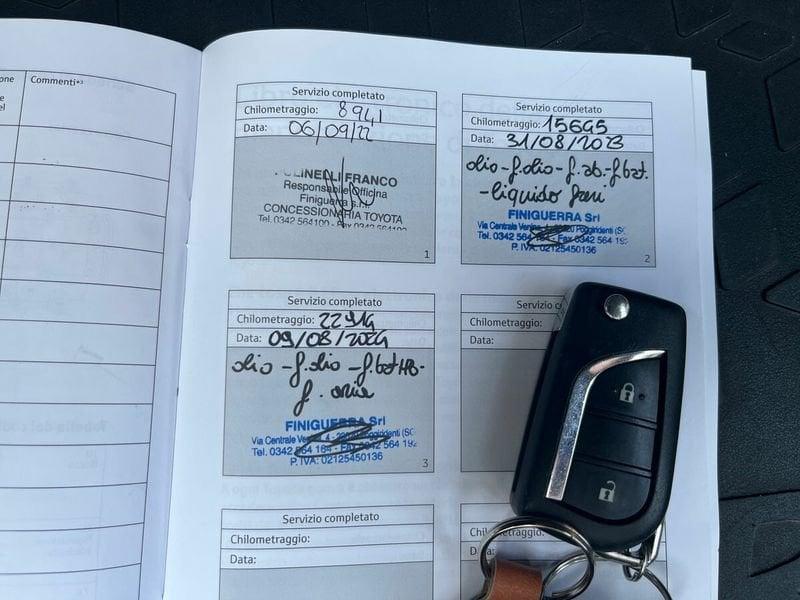 Commenti*³
Servizio completato
Chilometraggio: 8941
Data: 06/09/22
FRANCO
Responsabile Officina
Finiguerra s.r.l.
CONCESSIONARIA TOYOTA
Tel. 0342 564100 - Fax 0342 564100
1
Servizio completato
Chilometraggio: 15695
Data: 31/08/2023
olio - f.olio - f.ab. - f.bat.
- liquido freni
FINIGUERRA Srl
Via Centrale Poggiridenti (SO
Tel. 0342 564 Fax 0342 564
P. IVA: 02125450136
2
Servizio completato
Chilometraggio: 22914
Data: 09/08/2024
olio - f.olio - f.bat HB -
f. aria
FINIGUERRA Srl
Via Centrale 4 - Poggiridenti (SO
Tel. 0342 564 164 - Fax 0342 564
P. IVA: 02125450136
3
Chilometraggio:
Data:
Servizio completato
Chilometraggio:
Data: